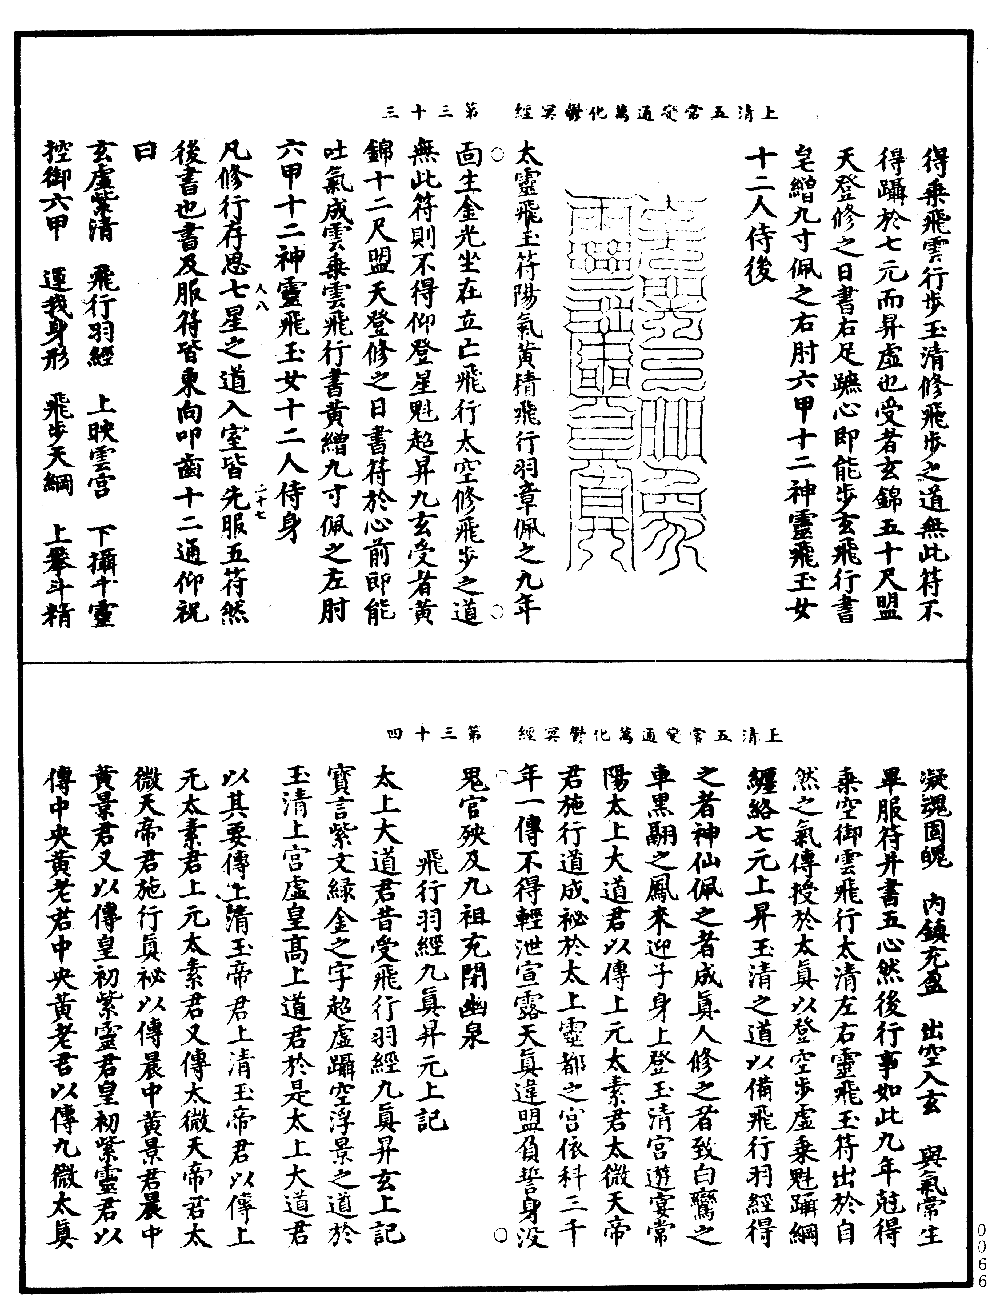 上清五常變通萬化鬱冥經　第三十三
得乘飛雲行步玉清修飛步之道無此符不
得躡於七元而昇虛也受者玄錦五十尺盟
天登修之日書右足蹠心即能步玄飛行書
皂繒九寸佩之右肘六甲十二神靈飛玉女
十二人侍後
太靈飛玉符陽氣黃精飛行羽章佩之九年
面生金光坐在立亡飛行太空修飛步之道
無此符則不得仰登星魁超昇九玄受者黃
錦十二尺盟天登修之日書符於心前即能
吐氣成雲乘雲飛行書黃繒九寸佩之左肘
六甲十二神靈飛玉女十二人侍身
人八　二十七
凡修行存思七星之道入室皆先服五符然
後書也書及服符皆東向叩齒十二通仰祝
曰
玄虛紫清　飛行羽經　上映雲宮　下攝十靈
控御六甲　運我身形　飛步天綱　上攀斗精
上清五常變通萬化鬱冥經　第三十四
凝魂固魄　內鎮充盈　出空入玄　與氣常生
畢服符并書五心然後行事如此九年尅得
乘空御雲飛行太清左右靈飛玉符出於自
然之氣傳授於太真以登空步虛乘魁躡綱
纏絡七元上昇玉清之道以備飛行羽經得
之者神仙佩之者成真人修之者致白鸞之
車黑翮之鳳來迎子身上登玉清宮遊宴常
陽太上大道君以傳上元太素君太微天帝
君施行道成祕於太上靈都之宮依科三千
年一傳不得輕泄宣露天真違盟負誓身沒
鬼官殃及九祖充閉幽泉
飛行羽經九真昇元上記
太上大道君昔受飛行羽經九真昇玄上記
寶言紫文綠金之字超虛躡空浮景之道於
玉清上宮虛皇高上道君於是太上大道君
以其要傳上清玉帝君上清玉帝君以傳上
元太素君上元太素君又傳太微天帝君太
微天帝君施行真祕以傳晨中黃景君晨中
黃景君又以傳皇初紫靈君皇初紫靈君以
傳中央黃老君中央黃老君以傳九微太真
0066